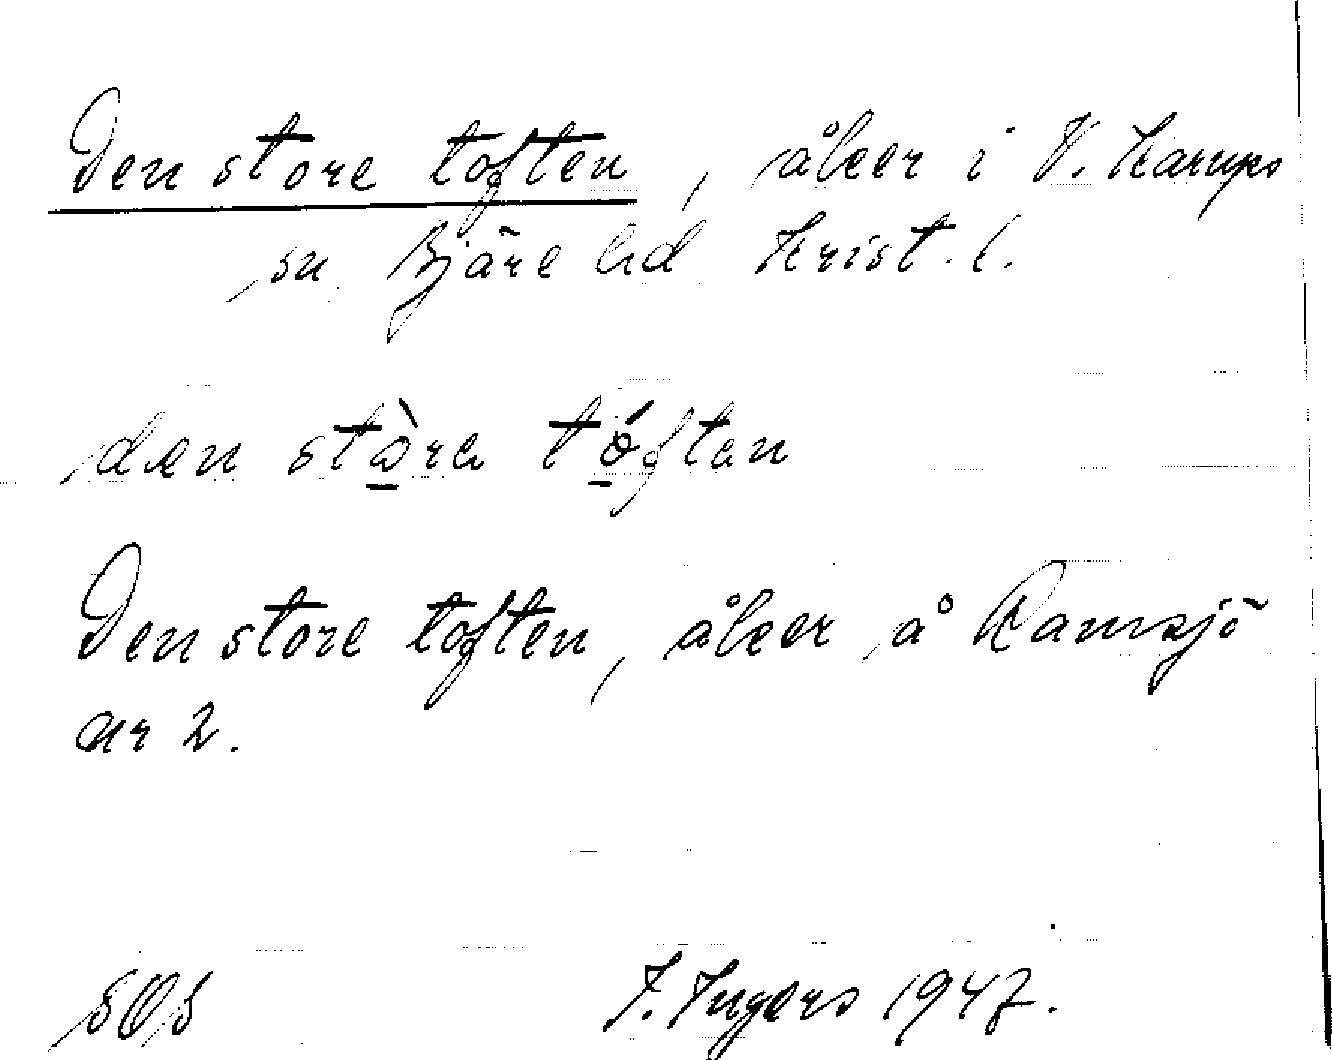 Den store toften, åker i V. Karups
sn Bjäre hd Krist. l.
den stòra tóftan
Den store toften, åker å Ramsjö
nr 2.
SOS I. Ingers 1947.